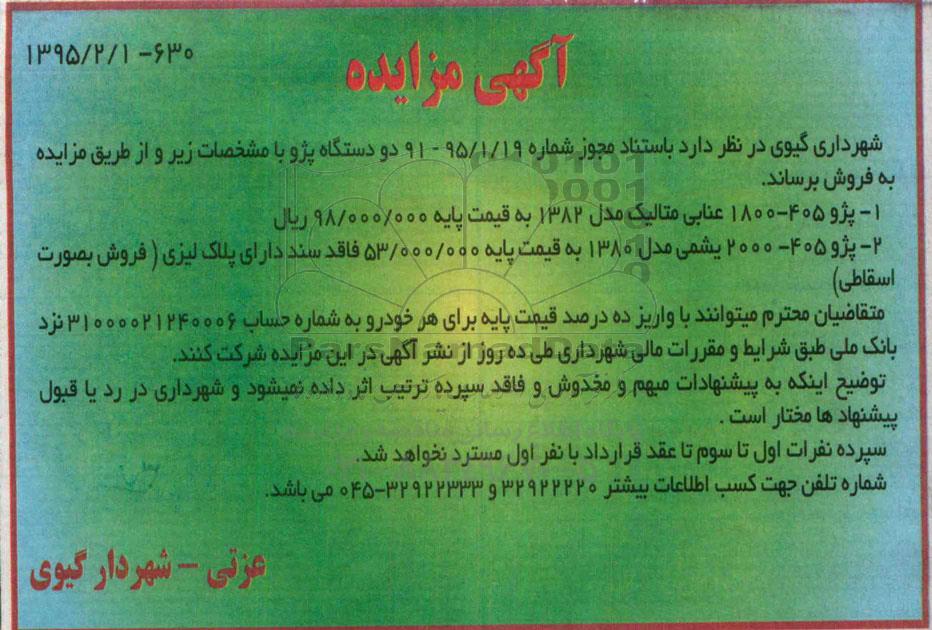 ۶۳۰- ۱۳۹۵/۲/۱
آگهی مزایده
شهرداری گیوی در نظر دارد باستناد مجوز شماره ۹۵/۱/۱۹ - ۹۱ دو دستگاه پژو با مشخصات زیر و از طریق مزایده
به فروش برساند.
۱- پژو ۴۰۵-۱۸۰۰ عنابی متالیک مدل ۱۳۸۲ به قیمت پایه ۹۸/۰۰۰/۰۰۰ ریال
۲- پژو ۴۰۵- ۲۰۰۰ یشمی مدل ۱۳۸۰ به قیمت پایه ۵۳/۰۰۰/۰۰۰ فاقد سند دارای پلاک لیزی ( فروش بصورت
اسقاطی)
متقاضیان محترم میتوانند با واریز ده درصد قیمت پایه برای هر خودرو به شماره حساب ۳۱۰۰۰۰۲۱۲۴۰۰۰۶ نزد
بانک ملی طبق شرایط و مقررات مالی شهرداری طی ده روز از نشر آگهی در این مزایده شرکت کنند.
توضیح اینکه به پیشنهادات مبهم و مخدوش و فاقد سپرده ترتیب اثر داده نمیشود و شهرداری در رد یا قبول
پیشنهاد ها مختار است .
سپرده نفرات اول تا سوم تا عقد قرارداد با نفر اول مسترد نخواهد شد.
شماره تلفن جهت کسب اطلاعات بیشتر ۳۲۹۲۲۲۲۰ و ۳۲۹۲۲۳۳۳-۰۴۵ می باشد.
عزتی – شهردار گیوی
ParsNamadData